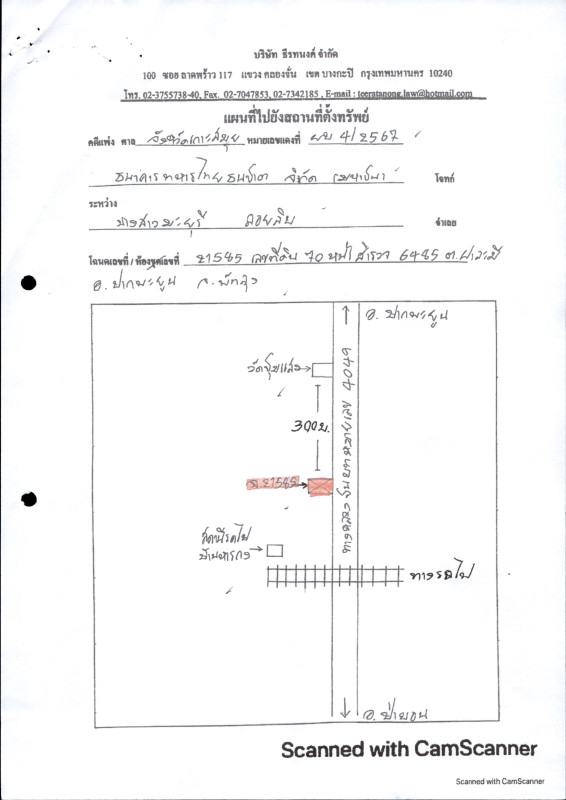 บริษัท ธีรทนงค์ จำกัด
100 ซอย ลาดพร้าว 117 แขวง คลองจั่น เขต บางกะปิ กรุงเทพมหานคร 10240
โทร. 02-3755738-40, Fax. 02-7047853, 02-7342185 , E-mail : teeratanong.law@hotmail.com
แผนที่ไปยังสถานที่ตั้งทรัพย์
คดีแพ่ง ศาล จังหวัดเกาะสมุย หมายเลขแดงที่ ผบ 4/2567
ธนาคารทหารไทยธนชาต จำกัด (มหาชน) โจทก์
ระหว่าง
นางสาวมะยุรี ลอยลิบ จำเลย
โฉนดเลขที่ / ห้องชุดเลขที่ 21585 เลขที่ดิน 70 หน้าสำรวจ 6485 ต.ฝาละมี
อ. ปากพะยูน จ. พัทลุง
อ. ปากพะยูน
300 ม.
ทางหลวงแผ่นดินหมายเลข 4049
ฉ.21585
สถานีรถไฟ
ทางรถไฟ
อ. ป่าบอน
Scanned with CamScanner
Scanned with CamScanner